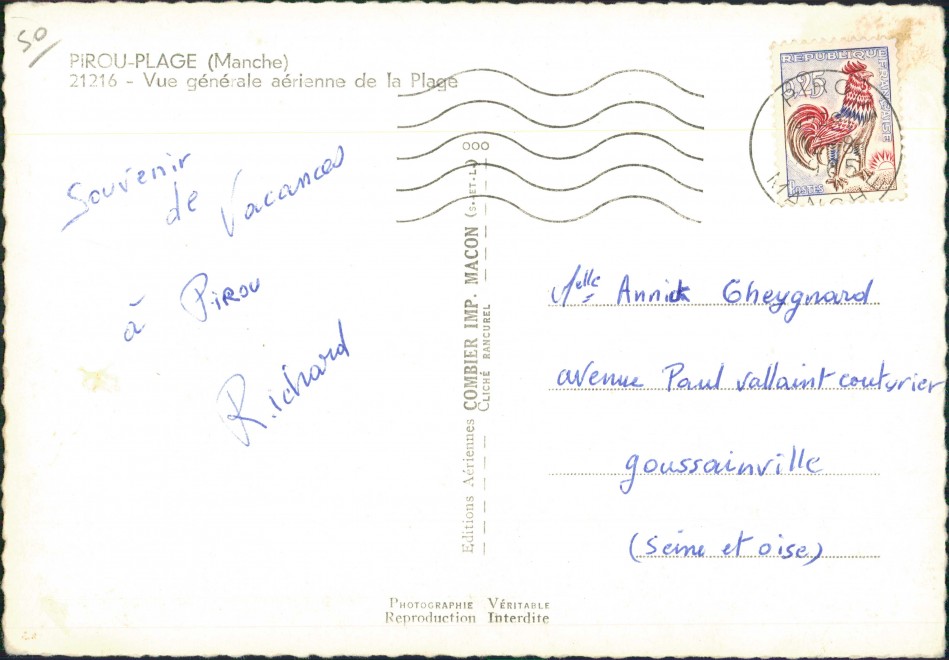 50
PIROU-PLAGE (Manche)
21216 - Vue générale aérienne de la Plage
Souvenir
de
Vacances
à Pirou
Richard
REPUBLIQUE FRANÇAISE
0,25
POSTES
PIROU
MANCHE
Editions Aériennes COMBIER IMP. MACON (S.-ET-L.) 000
CLICHÉ RANCUREL
Melle Annick Gheygnard
avenue Paul vallaint couturier
goussainville
(seine et oise)
PHOTOGRAPHIE VÉRITABLE
Reproduction Interdite